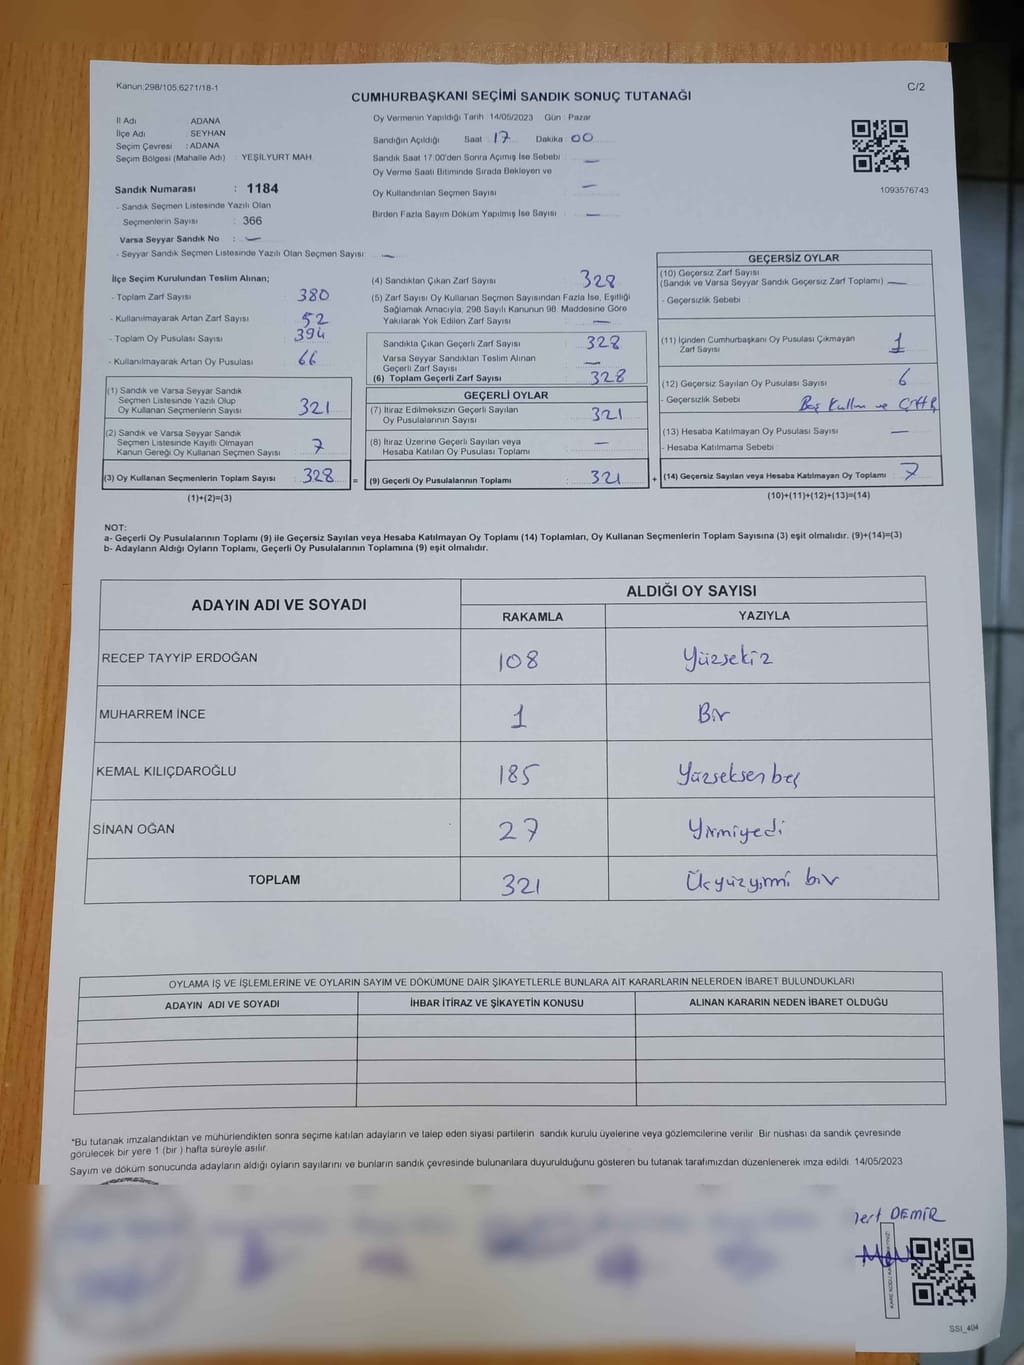 Kanun:298/105,6271/18-1
C/2
CUMHURBAŞKANI SEÇİMİ SANDIK SONUÇ TUTANAĞI
İl Adı : ADANA
İlçe Adı : SEYHAN
Seçim Çevresi : ADANA
Seçim Bölgesi (Mahalle Adı) : YEŞİLYURT MAH
Sandık Numarası : 1184
- Sandık Seçmen Listesinde Yazılı Olan
Seçmenlerin Sayısı : 366
Varsa Seyyar Sandık No : —
- Seyyar Sandık Seçmen Listesinde Yazılı Olan Seçmen Sayısı: —
Oy Vermenin Yapıldığı Tarih : 14/05/2023 Gün : Pazar
Sandığın Açıldığı Saat : 17 Dakika : 00
Sandık Saat 17:00'den Sonra Açımış İse Sebebi : —
Oy Verme Saati Bitiminde Sırada Bekleyen ve
Oy Kullandırılan Seçmen Sayısı : —
Birden Fazla Sayım Döküm Yapılmış İse Sayısı : —
1093576743
İlçe Seçim Kurulundan Teslim Alınan;
- Toplam Zarf Sayısı : 380
- Kullanılmayarak Artan Zarf Sayısı : 52
- Toplam Oy Pusulası Sayısı : 394
- Kullanılmayarak Artan Oy Pusulası : 66
(1) Sandık ve Varsa Seyyar Sandık
Seçmen Listesinde Yazılı Olup
Oy Kullanan Seçmenlerin Sayısı : 321
(2) Sandık ve Varsa Seyyar Sandık
Seçmen Listesinde Kayıtlı Olmayan
Kanun Gereği Oy Kullanan Seçmen Sayısı : 7
(3) Oy Kullanan Seçmenlerin Toplam Sayısı : 328
(1)+(2)=(3)
(4) Sandıktan Çıkan Zarf Sayısı : 328
(5) Zarf Sayısı Oy Kullanan Seçmen Sayısından Fazla İse, Eşitliği
Sağlamak Amacıyla; 298 Sayılı Kanunun 98. Maddesine Göre
Yakılarak Yok Edilen Zarf Sayısı : —
Sandıkta Çıkan Geçerli Zarf Sayısı : 328
Varsa Seyyar Sandıktan Teslim Alınan
Geçerli Zarf Sayısı : —
(6) Toplam Geçerli Zarf Sayısı : 328
GEÇERLİ OYLAR
(7) İtiraz Edilmeksizin Geçerli Sayılan
Oy Pusulalarının Sayısı : 321
(8) İtiraz Üzerine Geçerli Sayılan veya
Hesaba Katılan Oy Pusulası Toplamı : —
= (9) Geçerli Oy Pusulalarının Toplamı : 321 +
GEÇERSİZ OYLAR
(10) Geçersiz Zarf Sayısı
(Sandık ve Varsa Seyyar Sandık Geçersiz Zarf Toplamı) : —
- Geçersizlik Sebebi :
(11) İçinden Cumhurbaşkanı Oy Pusulası Çıkmayan
Zarf Sayısı : 1
(12) Geçersiz Sayılan Oy Pusulası Sayısı : 6
- Geçersizlik Sebebi : Boş Kullm ve Çift
(13) Hesaba Katılmayan Oy Pusulası Sayısı : —
- Hesaba Katılmama Sebebi :
(14) Geçersiz Sayılan veya Hesaba Katılmayan Oy Toplamı : 7
(10)+(11)+(12)+(13)=(14)
NOT:
a- Geçerli Oy Pusulalarının Toplamı (9) ile Geçersiz Sayılan veya Hesaba Katılmayan Oy Toplamı (14) Toplamları, Oy Kullanan Seçmenlerin Toplam Sayısına (3) eşit olmalıdır. (9)+(14)=(3)
b- Adayların Aldığı Oyların Toplamı, Geçerli Oy Pusulalarının Toplamına (9) eşit olmalıdır.
ADAYIN ADI VE SOYADI ALDIĞI OY SAYISI
RAKAMLA YAZIYLA
RECEP TAYYİP ERDOĞAN 108 Yüzsekiz
MUHARREM İNCE 1 Bir
KEMAL KILIÇDAROĞLU 185 Yüzseksen beş
SİNAN OĞAN 27 Yirmiyedi
TOPLAM 321 Üçyüzyirmi bir
OYLAMA İŞ VE İŞLEMLERİNE VE OYLARIN SAYIM VE DÖKÜMÜNE DAİR ŞİKAYETLERLE BUNLARA AİT KARARLARIN NELERDEN İBARET BULUNDUKLARI
ADAYIN ADI VE SOYADI İHBAR İTİRAZ VE ŞİKAYETİN KONUSU ALINAN KARARIN NEDEN İBARET OLDUĞU
*Bu tutanak imzalandıktan ve mühürlendikten sonra seçime katılan adayların ve talep eden siyasi partilerin sandık kurulu üyelerine veya gözlemcilerine verilir. Bir nüshası da sandık çevresinde
görülecek bir yere 1 (bir ) hafta süreyle asılır.
Sayım ve döküm sonucunda adayların aldığı oyların sayılarını ve bunların sandık çevresinde bulunanlara duyurulduğunu gösteren bu tutanak tarafımızdan düzenlenerek imza edildi. 14/05/2023
DEMİR
SSI_404